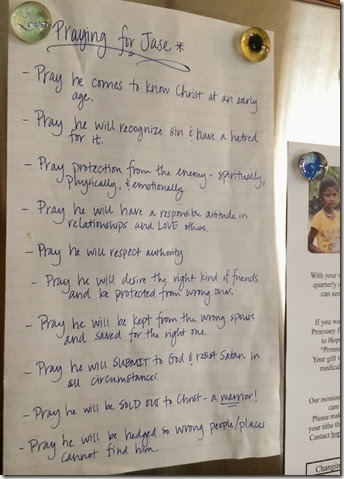 Love
Praying for Jase *
- Pray he comes to know Christ at an early
age.
- Pray he will recognize sin & have a hatred
for it.
- Pray protection from the enemy - spiritually,
physically, & emotionally.
- Pray he will have a responsible attitude in
relationships and LOVE others.
- Pray he will respect authority.
- Pray he will desire the right kind of friends
and be protected from wrong ones.
- Pray he will be kept from the wrong spouse
and saved for the right one.
- Pray he will SUBMIT to God & resist Satan in
all circumstances.
- Pray he will be SOLD OUT to Christ - a warrior!
- Pray he will be hedged so wrong people/places
cannot find him.
With your s
quarterly
can sen
If you wo
Promsey f
to Hope
"Promse
Your gift w
medical
Our mission
care
Please make
your tithe th
Contact
Changin